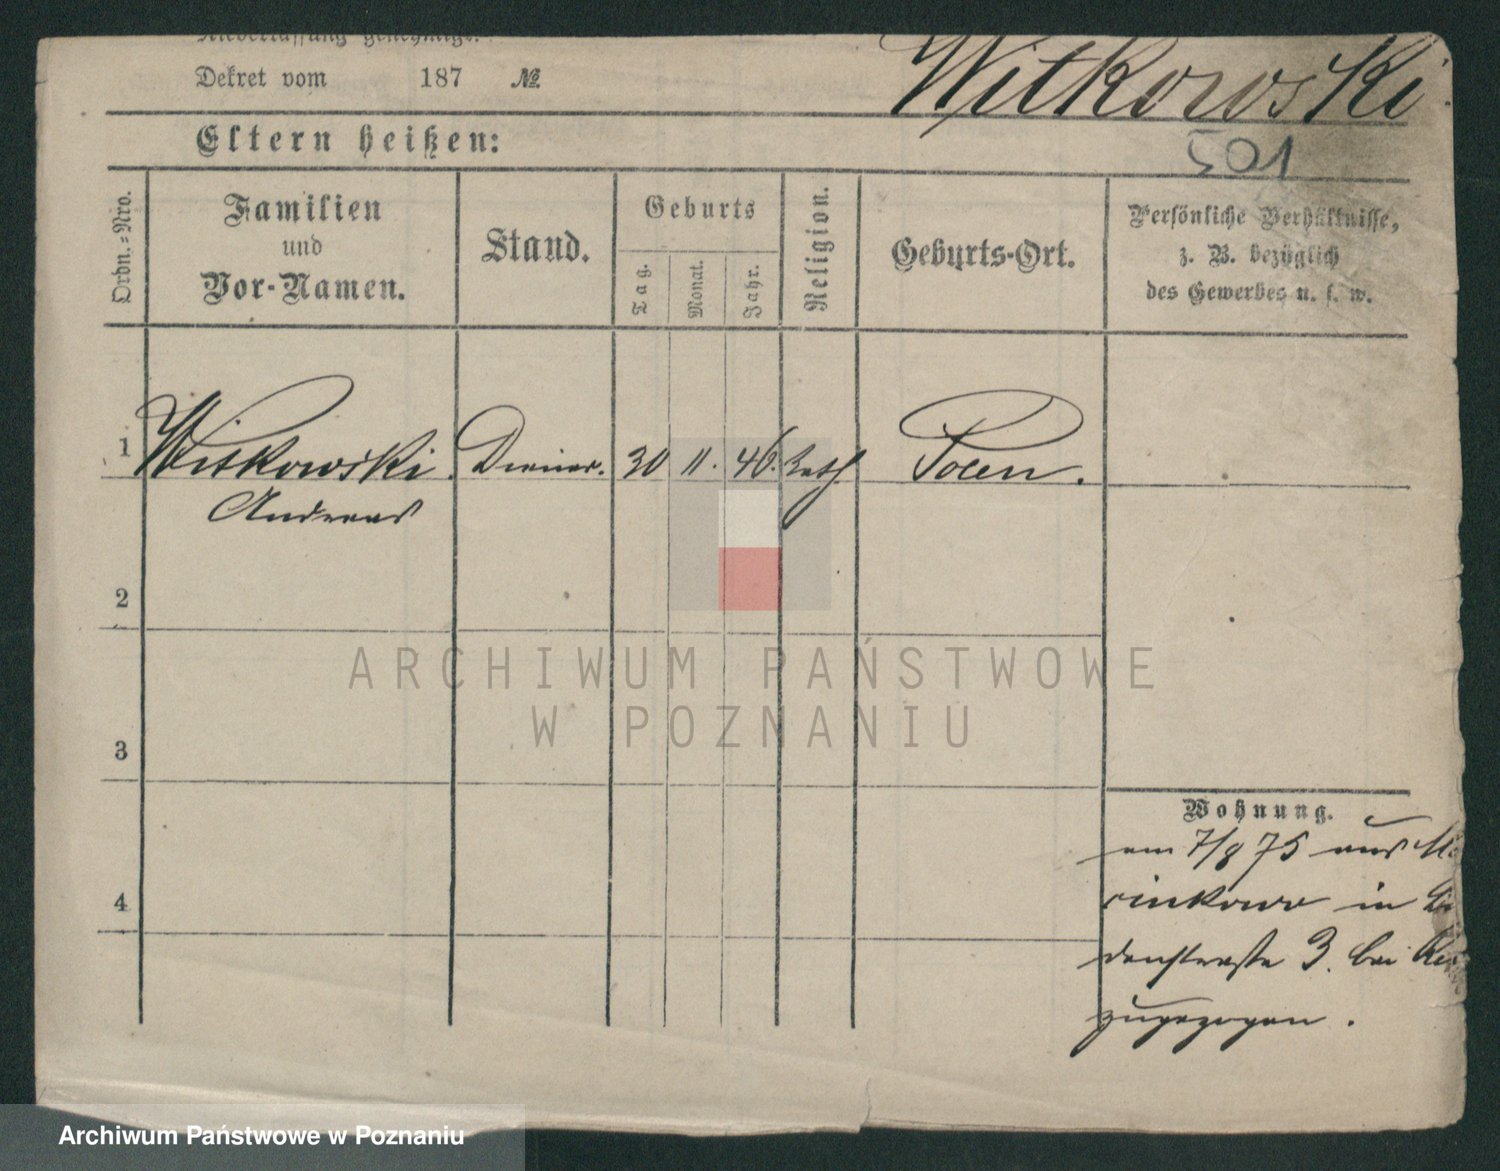 Niederlassung genehmigt.
Dekret vom 187 №
Witkowski
501
Eltern heißen:
Ordn.=Nro.
Familien
und
Vor-Namen.
Stand.
Geburts
Tag.
Monat.
Jahr.
Religion.
Geburts-Ort.
Persönliche Verhältnisse,
z. B. bezüglich
des Gewerbes u. s. w.
1 Witkowski Diener. 30 11. 46. kath Posen.
Andreas
2
3
4
Wohnung.
am 7/8 75 aus
rinkowo in
denstraße 3. bei
zugezogen.
ARCHIWUM PAŃSTWOWE
W POZNANIU
Archiwum Państwowe w Poznaniu